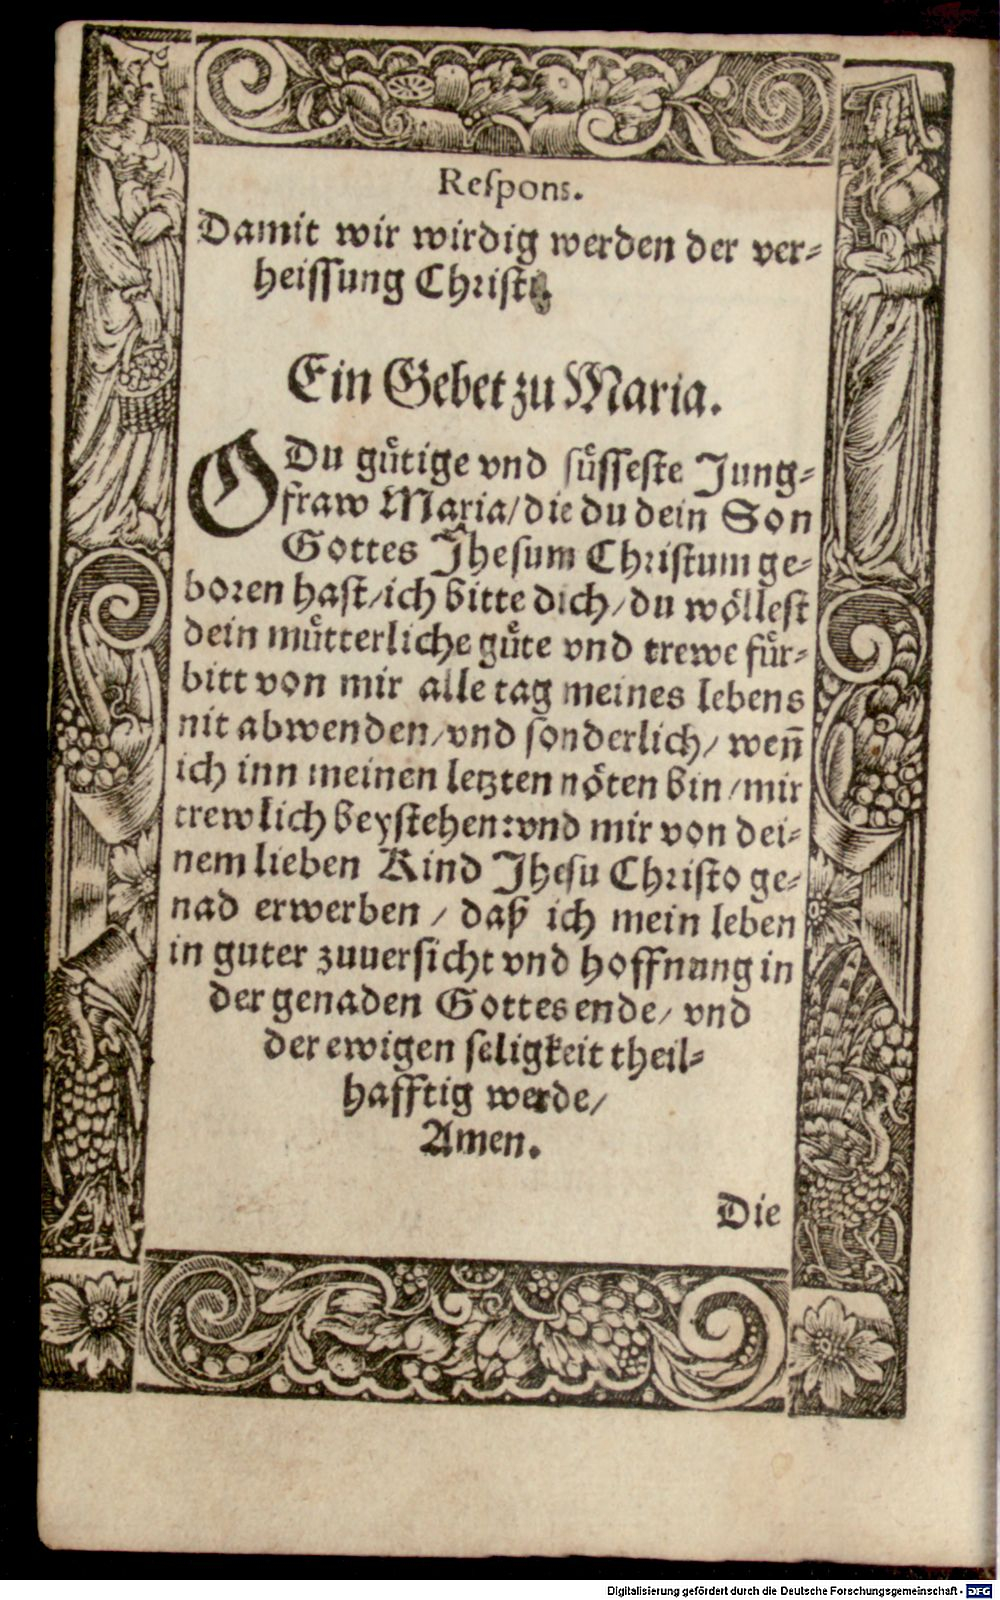 Reſpons.
Damit wir wirdig werden der ver-
heiſſung Chriſti.
Ein Gebet zu Maria.
O Du guͤtige vnd ſuͤſſeſte Jung-
fraw Maria/ die du dein Son
Gottes Jheſum Chriſtum ge-
boren haſt/ ich bitte dich/ du woͤlleſt
dein muͤtterliche guͤte vnd trewe fuͤr-
bitt von mir alle tag meines lebens
nit abwenden/ vnd ſonderlich/ wen̄
ich inn meinen letzten noͤten bin/ mir
trewlich beyſtehen: vnd mir von dei-
nem lieben Kind Jheſu Chriſto ge-
nad erwerben / daß ich mein leben
in guter zuuerſicht vnd hoffnung in
der genaden Gottes ende/ vnd
der ewigen ſeligkeit theil-
hafftig werde/
Amen.
Die
Digitalisierung gefördert durch die Deutsche Forschungsgemeinschaft - DFG